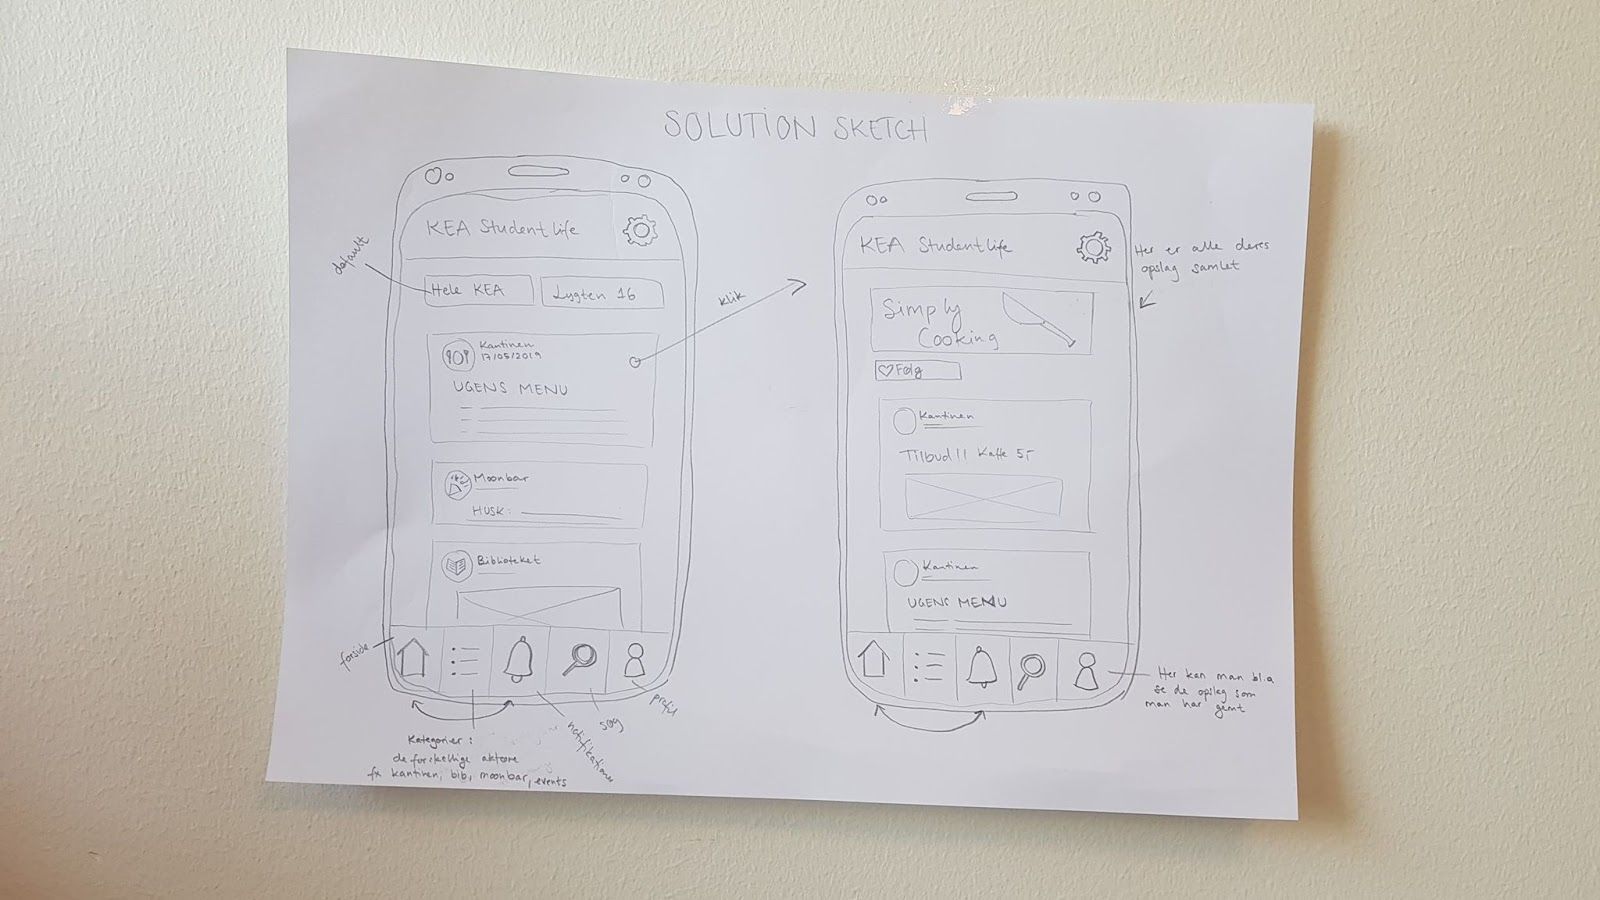 SOLUTION SKETCH
default
KEA Studentlife
Hele KEA
Lygten 16
Kantinen
17/05/2019
UGENS MENU
Moonbar
HUSK:
Biblioteket
forside
Kategorier:
de forskellige aktøre
fx kantinen, bib, moonbar, events
notifikationer
søg
profil
klik
KEA Studentlife
Her er alle deres
opslag samlet
Simply
Cooking
Følg
Kantinen
Tilbud!! Kaffe 5,-
Kantinen
UGENS MENU
Her kan man bl.a
se de opslag som
man har gemt